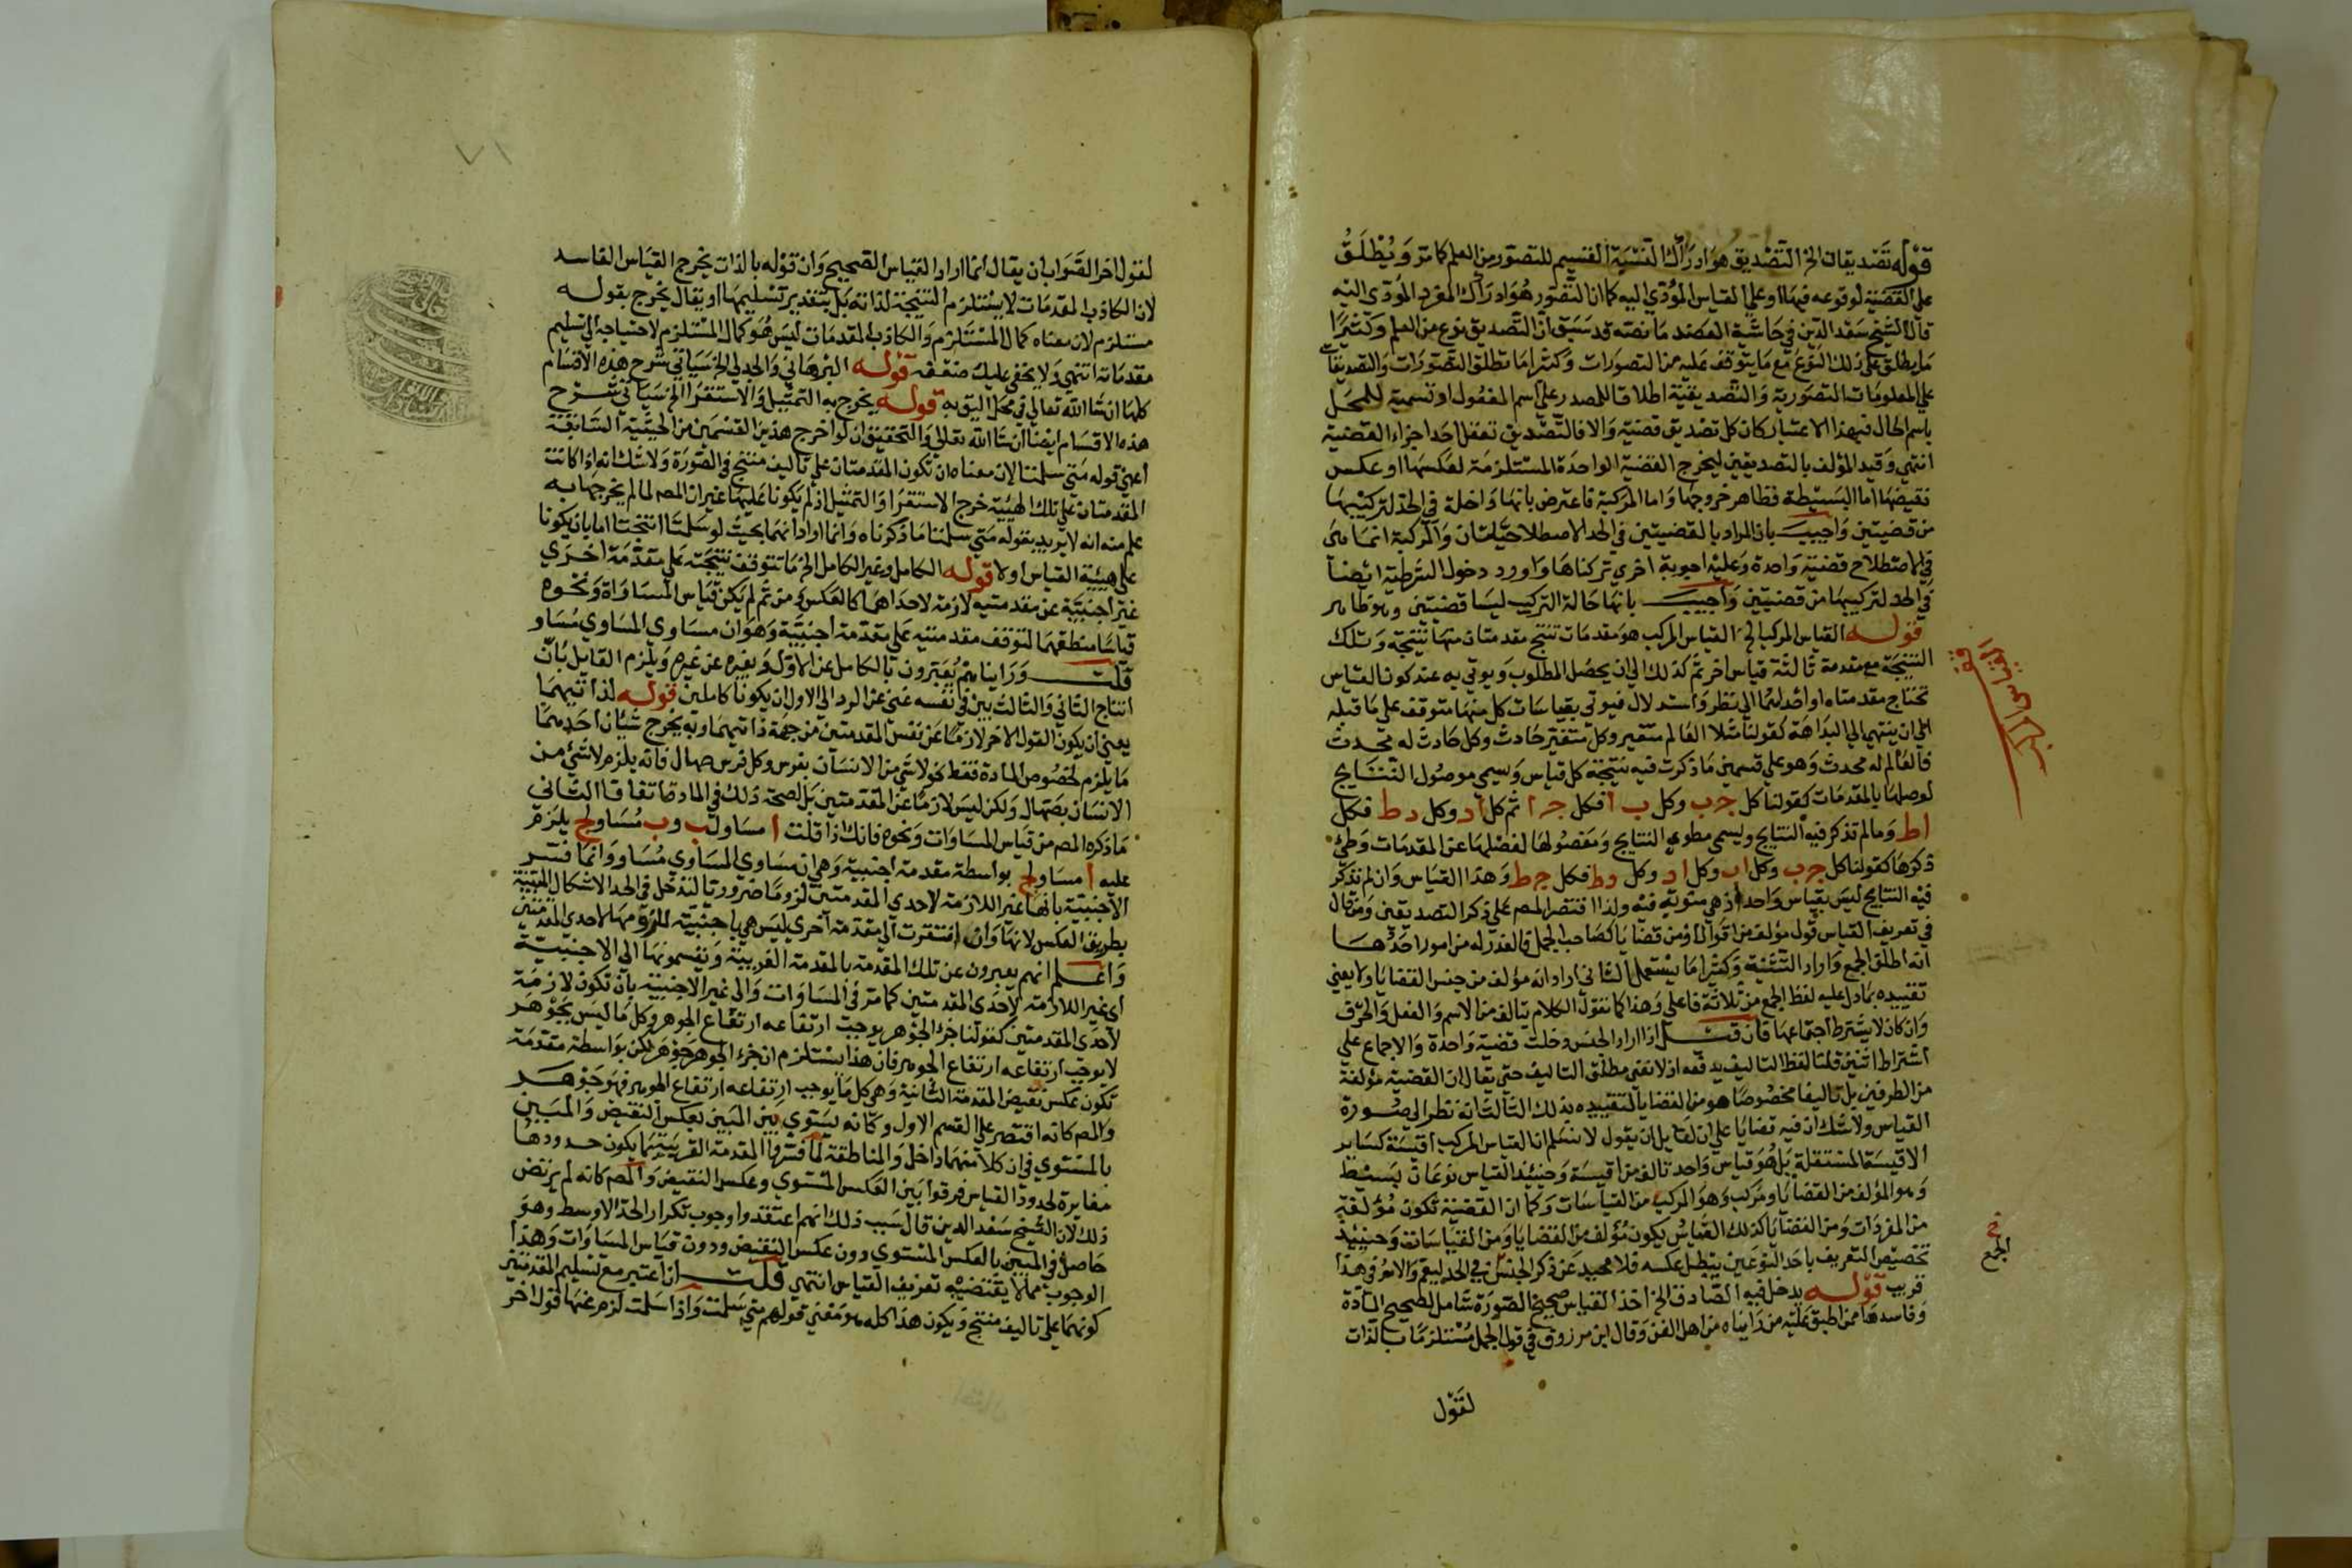 قوله تصديقات الخ التصديق هو ادراك النسبة القسيم للتصور من العلم كما مر ويطلق
على القضية لوقوعه فيها او على القياس المؤدي اليه كما ان التصور هو ادراك المفرد المؤدي اليه
قال الشيخ سعد الدين في حاشية العضد ما نصه قد سبق ان التصديق نوع من العلم وكثيرا
ما يطلق على ذلك النوع مع ما يتوقف عليه من التصورات وكثيرا ما تطلق التصورات والتصديقات
على المعلومات التصورية والتصديقية اطلاقا للمصدر على اسم المفعول او تسمية للمحل
باسم الحال فبهذا الاعتبار كان كل تصديق قضية والا فالتصديق تعقل احد اجزاء القضية
انتهى وقيد المؤلف بالتصديقين ليخرج القضية الواحدة المستلزمة لعكسها او عكس
نقيضها اما البسيطة فظاهر خروجها واما المركبة فاعترض بانها داخلة في الحد لتركيبها
من قضيتين واجيب بان المراد بالقضيتين في الحد الاصطلاحيتان والمركبة انما هى
في الاصطلاح قضية واحدة وعليه اجوبة اخرى تركناها واورد دخول الشرطية ايضا
في الحد لتركيبها من قضيتين واجيب بانها حالة التركيب ليسا قضيتين وهو ظاهر
قوله القياس المركب الخ القياس المركب هو مقدمات تنتج مقدمتان منها نتيجة وتلك
النتيجة مع مقدمة ثالثة قياس اخر ثم كذلك الى ان يحصل المطلوب ويوتى به عند كون القياس
تحتاج مقدمتاه او احداهما الى نظر واستدلال فيوتى بقياسات كل منها متوقف على ما قبله
الى ان ينتهى الى البداهة كقولنا مثلا العالم متغير وكل متغير حادث وكل حادث له محدث
فالعالم له محدث وهو على قسمين ما ذكرت فيه نتيجة كل قياس ويسمى موصول النتايج
لوصلها بالمقدمات كقولنا كل ج ب وكل ب ا فكل ج ا ثم كل ا د وكل د ط فكل
ا ط وما لم تذكر فيه النتايج ويسمى مطوي النتايج ومفصولها لفصلها عن المقدمات وطي
ذكرها كقولنا كل ج ب وكل ا ب وكل ا د وكل د ط فكل ج ط وهذا القياس وان لم تذكر
فيه النتايج ليس بقياس واحد اذ هي منوية فيه ولذا اقتصر المص على ذكر التصديقين ومن قال
في تعريف القياس قول مؤلف من اقوال او من قضايا كصاحب الجمل فالعذر له من امور احدها
انه اطلق الجمع واراد التثنية وكثيرا ما يستعمل الثاني اراد انه مؤلف من جنس القضايا ولا يعني
تقييده بما دل عليه لفظ الجمع من ثلاثة فاعلى وهذا كما نقول الكلام يتالف من الاسم والفعل والحرف
وان كان لا يشترط اجتماعها فان قيل اذا اراد الجنس دخلت قضية واحدة والاجماع على
اشتراط اثنين قلنا لفظ التاليف يدفعه اذ لا نعني مطلق التاليف حتى يقال ان القضية مؤلفة
من الطرفين بل تاليفا مخصوصا هو من القضايا لتقييده بذلك الثالث انه نظر الى صورة
القياس ولا شك ان فيه قضايا على ان لقايل ان يقول لا نسلم ان القياس المركب اقيسة كساير
الاقيسة المستقلة بل هو قياس واحد تالف من اقيسة وحينئذ القياس نوعان بسيط
وهو المؤلف من القضايا ومركب وهو المركب من القياسات وكما ان القضية تكون مؤلفة
من المفردات ومن القضايا كذلك القياس يكون مؤلف من القضايا ومن القياسات وحينئذ
تخصيص التعريف باحد النوعين يبطل عكسه فلا محيد عن ذكر الجنس في الحد ليعم والامر في هذا
قريب قوله يدخل فيه الصادق الخ اخذ القياس صحيح الصورة شامل لصحيح المادة
وفاسدها ممن اطبق عليه من راينا من اهل الفن وقال ابن مرزوق في قول الجمل مستلزما بالذات
لقول
قف
القياس المركب
الجمع
٧١
لقول اخر الصواب ان يقال انما اراد القياس الصحيح وان قوله بالذات يخرج القياس الفاسد
لان الكاذب المقدمات لا يستلزم النتيجة لذاته بل بتقدير تسليمها او يقال يخرج بقوله
مستلزم لان معناه كمال المستلزم والكاذب المقدمات ليس هو كمال المستلزم لاحتياجه الى تسليم
مقدماته انتهى ولا يخفى عليك ضعفه قوله البرهاني والجدلي الخ سياتي شرح هذه الاقسام
كلها ان شا الله تعالى في محل اليق به قوله يخرج به التمثيل والاستقرا الخ سياتي شرح
هذه الاقسام ايضا ان شا الله تعالى والتحقيق ان لو اخرج هذين القسمين من الحيثية السابقة
اعني قوله متى سلمتا لان معناه ان تكون المقدمتان على تاليف منتج في الصورة ولا شك انه اذا كانت
المقدمتان على تلك الهيئة خرج الاستقرا والتمثيل اذ لم يكونا عليها غير ان المص لما لم يخرجها به
علم منه انه لا يريد بقوله متى سلمتا ما ذكرناه وانما اراد انهما بحيث لو سلمتا انتجتا اما بان يكونا
على هيئة القياس اولا قوله الكامل وغير الكامل الخ ما تتوقف نتيجته على مقدمة اخرى
غير اجنبية عن مقدمتيه لازمة لاحداهما كالعكس ومن ثم لم يكن قياس المساواة ونحوه
قياسا منطقيا لتوقف مقدمتيه على مقدمة اجنبية وهو ان مساوي المساوي مساو
قلت وراينا هم يعبرون بالكامل عن الاول وبغيره عن غيره ويلزم القايل بان
انتاج الثاني والثالث بين في نفسه غنى عن الرد الى الاول ان يكونا كاملين قوله لذاتيهما
يعني ان يكون القول الاخر لازما عن نفس المقدمتين من جهة ذاتيهما وبه يخرج شيئان احدهما
ما يلزم لخصوص المادة فقط نحو لا شي من الانسان بفرس وكل فرس صهال فانه يلزم لا شئ من
الانسان بصهال ولكن ليس لازما عن المقدمتين بل لصحة ذلك في المادة اتفاقا الثاني
ما ذكره المص من قياس المساوات ونحوه فانك اذا قلت ا مساو ل ب و ب مساو ل ج يلزم
عليه ا مساو ل ج بواسطة مقدمة اجنبية وهي ان مساوي المساوي مساو وانما فسر
الاجنبية بانها غير اللازمة لاحدى المقدمتين لزوما ضروريا ليدخل في الحد الاشكال المبينة
بطريق العكس لانها وان افتقرت الى مقدمة اخرى ليس هي باجنبية للزومها لاحدى المقدمتين
واعلم انهم يعبرون عن تلك المقدمة بالمقدمة الغريبة ويقسمونها الى الاجنبية
اى غير اللازمة لاحدى المقدمتين كما مر في المساوات والى غير الاجنبية بان تكون لازمة
لاحدى المقدمتين كقولنا جزء الجوهر يوجب ارتفاعه ارتفاع الجوهر وكل ما ليس بجوهر
لا يوجب ارتفاعه ارتفاع الجوهر فان هذا يستلزم ان جزء الجوهر جوهر لكن بواسطة مقدمة
تكون عكس نقيض المقدمة الثانية وهي كل ما يوجب ارتفاعه ارتفاع الجوهر فهو جوهر
والمص كانه اقتصر على القسم الاول وكانه يستوي بين المبين بعكس النقيض والمبين
بالمستوي في ان كلا منهما داخل والمناطقة لما فسروا المقدمة الغريبة بما يكون حدودها
مغايرة لحدود القياس فرقوا بين العكس المستوي وعكس النقيض والمص كانه لم يرتض
ذلك لان الشيخ سعد الدين قال سبب ذلك انهم اعتقدوا وجوب تكرار الحد الاوسط وهو
حاصل في المبين بالعكس المستوي دون عكس النقيض ودون قياس المساوات وهذا
الوجوب مما لا يقتضيه تعريف القياس انتهى قلت ان اعتبر مع تسليم المقدمتين
كونهما على تاليف منتج ويكون هذا كله هو معنى قولهم متى سلمت واذا سلمت لزم عنها قول اخر